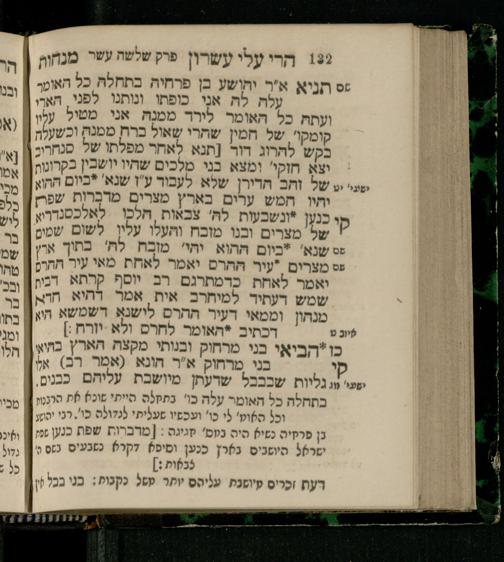 132 הרי עלי עשרון פרק שלשה עשר מנחות
שם תניא א״ר יהושע בן פרחיה בתחלה כל האומר
עלה לה אני כופתו ונותנו לפני הארי
ועתה כל האומר לירד ממנה אני מטיל עליו
קומקו׳ של חמין שהרי שאול ברח ממנה וכשעלה
בקש להרוג דוד [תנא לאחר מפלתו של סנחריב
יצא חזקי׳ ומצא בני מלכים שהיו יושבין בקרונות
ישעי׳ יט של זהב הדירן שלא לעבוד ע״ז שנא׳ *ביום ההוא
יהיו חמש ערים בארץ מצרים מדברות שפת
קי כנען *ונשבעות לה׳ צבאות הלכו לאלכסנדריא
של מצרים ובנו מזבח והעלו עליו לשום שמים
שם שנא׳ *ביום ההוא יהי׳ מזבח לה׳ בתוך ארץ
שם מצרים *עיר ההרס יאמר לאחת מאי עיר ההרס
יאמר לאחת כדמתרגם רב יוסף קרתא דבית
שמש דעתיד למיחרב אית אמר דהיא חדא
מנהון וממאי דעיר ההרס לישנא דשמשא היא
איוב ט דכתיב *האומר לחרס ולא יזרח:]
כו *הביאי בני מרחוק ובנותי מקצה הארץ בהיאי
קי בני מרחוק א״ר הונא (אמר רב) אלו
ישעי׳ מג גליות שבבבל שדעתן מיושבת עליהם כבנים.
בתחלה כל האומר עלה כו׳ בתחלה הייתי שונא את הרבנות
וכל האומ׳ לי כו׳ ועכשיו שעליתי לגדולה כו׳. רבי יהושע
בן פרחיה נשיא היה במס׳ חגיגה: [מדברות שפת כנען שפת
ישראל היושבים בארץ כנען וסיפא דקרא נשבעים בשם ה׳
צבאות:]
דעת זכרים מיושבת עליהם יותר משל נקבות: בני בבל אין